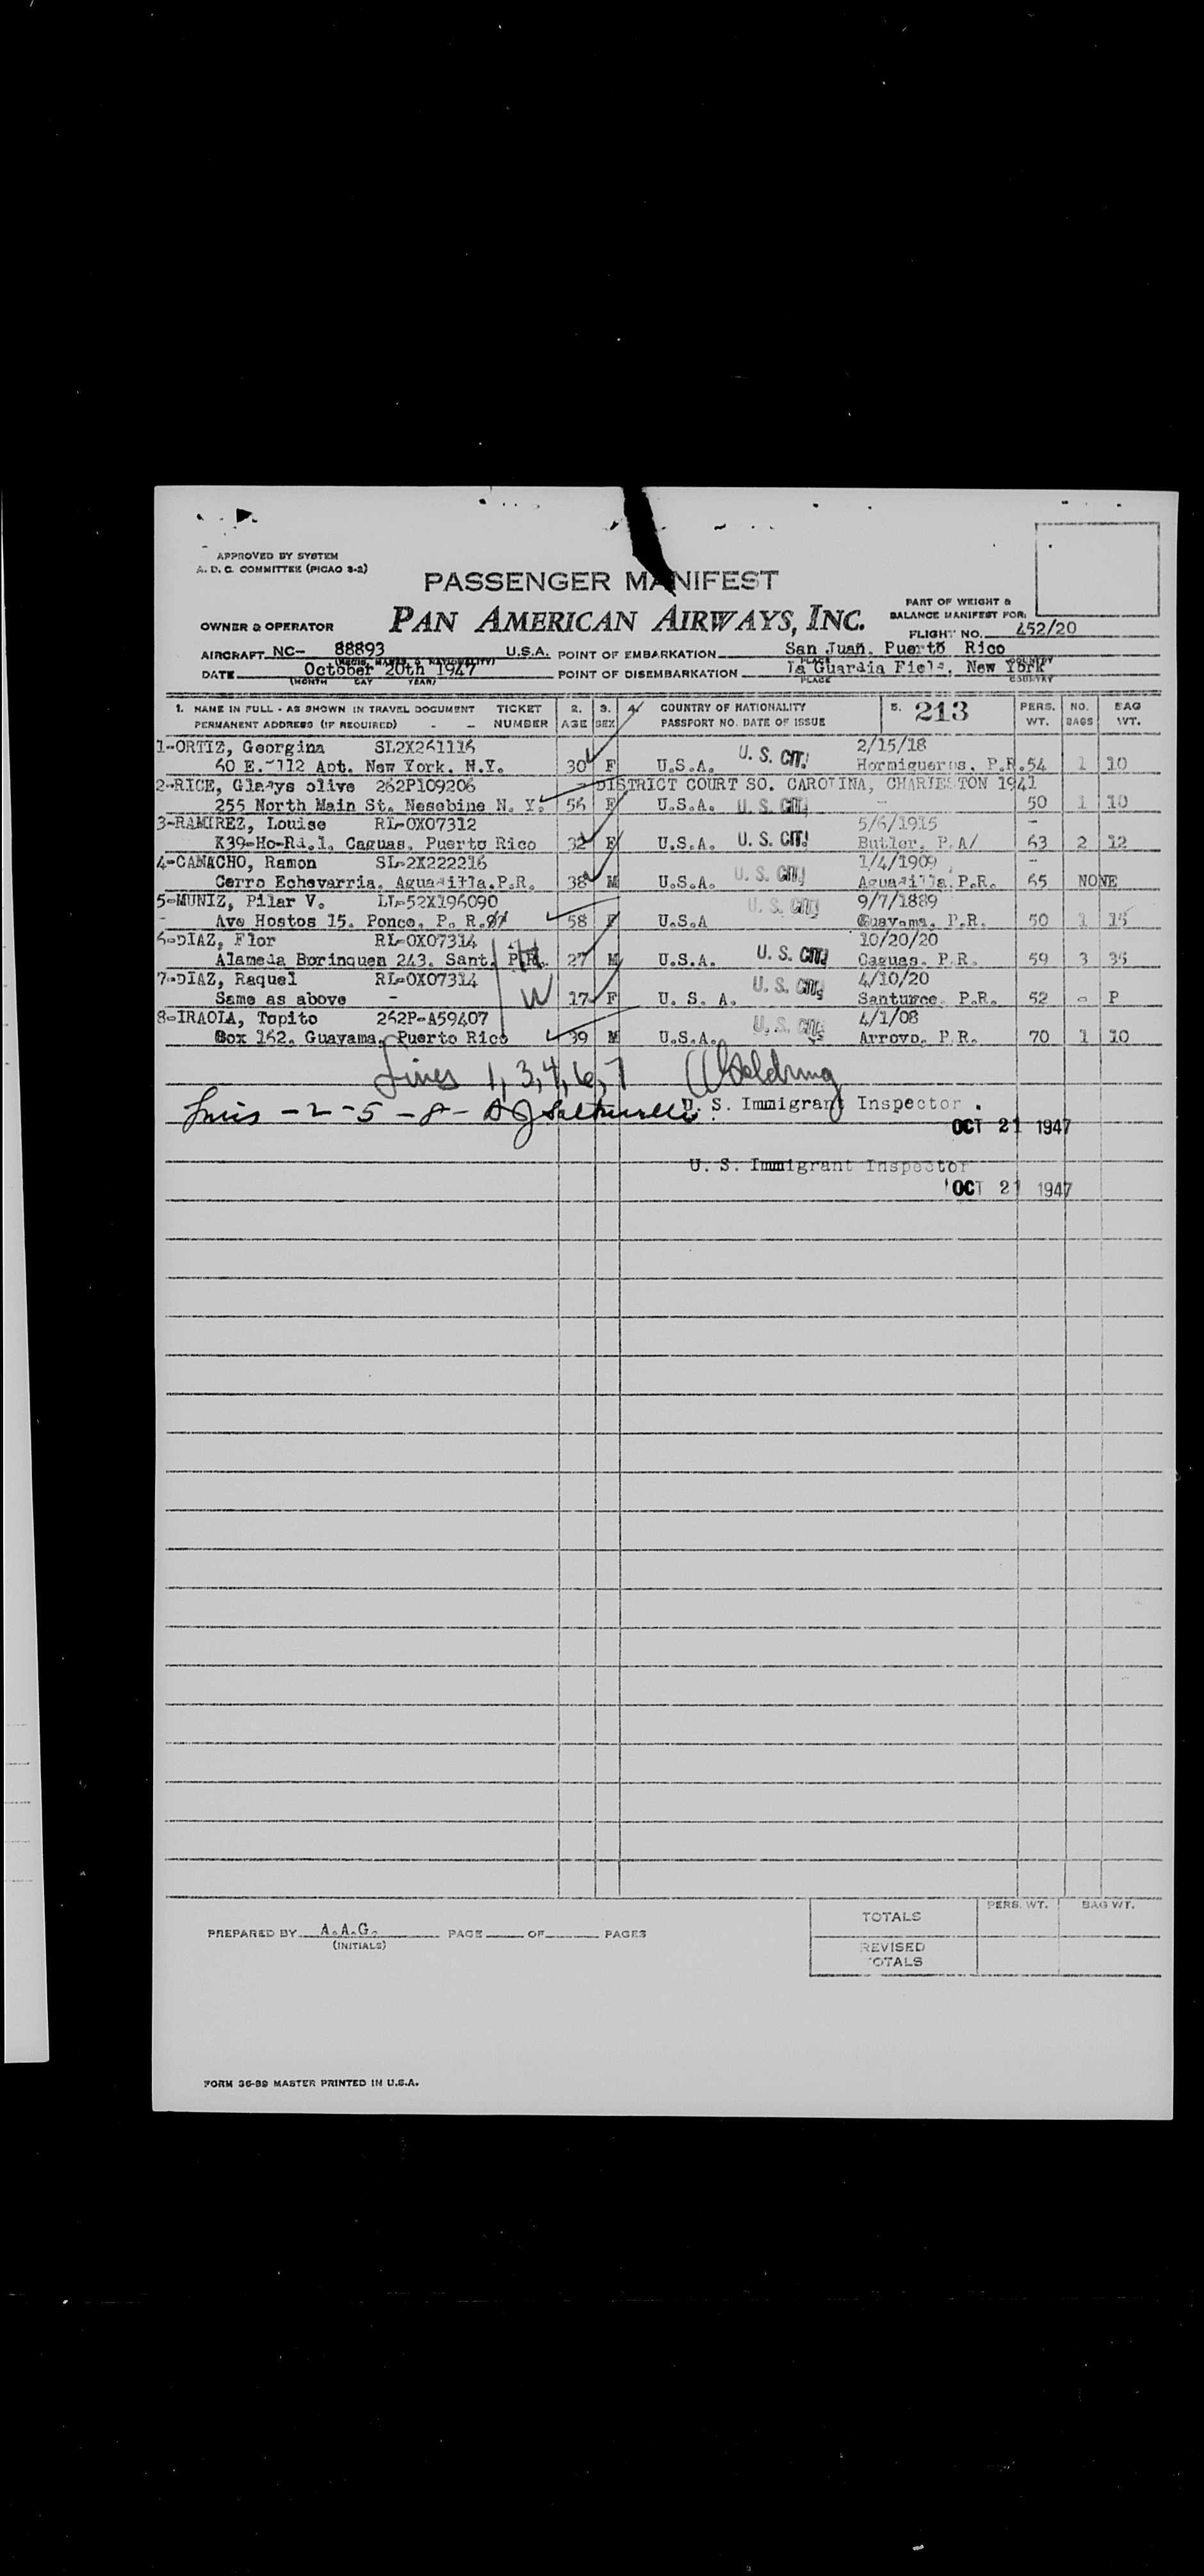 APPROVED BY SYSTEM
A. D. C. COMMITTEE (PICAO 3-2)
PASSENGER MANIFEST
PAN AMERICAN AIRWAYS, INC.
OWNER & OPERATOR
PART OF WEIGHT &
BALANCE MANIFEST FOR:
FLIGHT NO. 452/20
AIRCRAFT NC- 88893 U.S.A. POINT OF EMBARKATION San Juan, Puerto Rico
DATE October 20th 1947 POINT OF DISEMBARKATION La Guardia Field, New York
(MONTH DAY YEAR) PLACE COUNTRY
1. NAME IN FULL - AS SHOWN IN TRAVEL DOCUMENT TICKET 2. 3. 4. COUNTRY OF NATIONALITY 5. 213 PERS. NO. BAG
PERMANENT ADDRESS (IF REQUIRED) - - NUMBER AGE SEX PASSPORT NO. DATE OF ISSUE WT. BAGS WT.
1-ORTIZ, Georgina SL2X261116 2/15/18
60 E.-112 Apt. New York. N.Y. 30 F U.S.A. U. S. CIT. Hormigueros, P.R. 54 1 10
2-RICE, Gladys olive 262P109206 -DISTRICT COURT SO. CAROLINA, CHARLESTON 1941
255 North Main St. Nesebine N. Y. 56 F U.S.A. U. S. CIT. - 50 1 10
3-RAMIREZ, Louise RL-0X07312 5/6/1915 -
K39-Ho-Rd.1. Caguas. Puerto Rico 32 F U.S.A. U. S. CIT. Butler. P.A/ 63 2 12
4-CAMACHO, Ramon SL-2X222216 1/4/1909 -
Cerro Echevarria. Aguadilla.P.R. 38 M U.S.A. U. S. CIT. Aguadilla.P.R. 65 NONE
5-MUNIZ, Pilar V. LL-52X196090 9/7/1889
- Ave Hostos 15. Ponce. P. R. 58 F U.S.A U. S. CIT. Guayama. P.R. 50 1 15
6-DIAZ, Flor RL-0X07314 10/20/20
Alameda Borinquen 243. Sant. P.R. 27 M U.S.A. U. S. CIT. Caguas. P.R. 59 3 35
7-DIAZ, Raquel RL-0X07314 4/10/20
Same as above - W 17 F U. S. A. U. S. CIT. Santurce. P.R. 52 - P
8-IRAOLA, Topito 262P-A59407 4/1/08
Box 162. Guayama. Puerto Rico 39 M U.S.A. U. S. CIT. Arroyo. P.R. 70 1 10
Lines 1, 3, 4, 6, 7
Lines - 2 - 5 - 8 - U. S. Immigrant Inspector.
OCT 21 1947
U. S. Immigrant Inspector
OCT 21 1947
PREPARED BY A.A.G. PAGE OF PAGES
(INITIALS)
PERS. WT. BAG WT.
TOTALS
REVISED
TOTALS
FORM 36-89 MASTER PRINTED IN U.S.A.